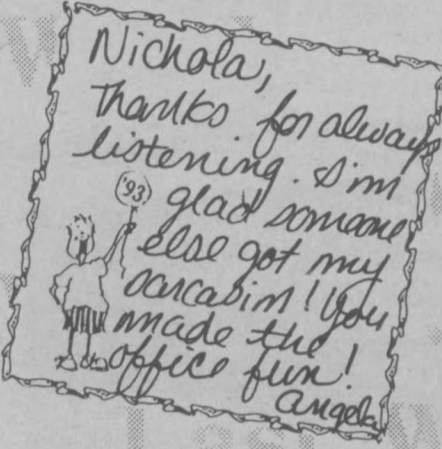 Nichola,
Thanks for always
listening. I'm
'93
glad someone
else got my
sarcasim! You
made the
office fun!
Angela